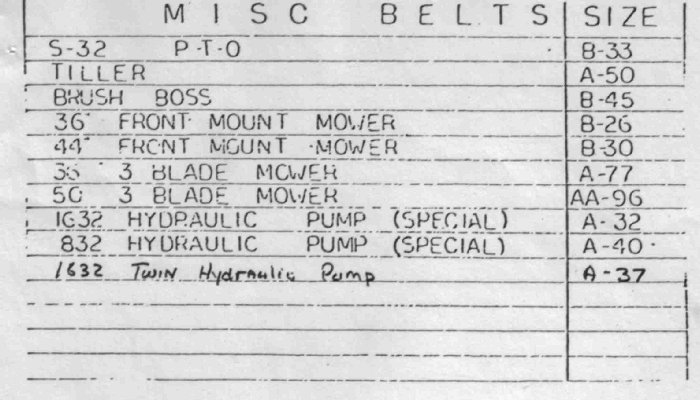 MISC BELTS SIZE
S-32 P-T-O B-33
TILLER A-50
BRUSH BOSS B-45
36" FRONT MOUNT MOWER B-26
44" FRONT MOUNT MOWER B-30
36 3 BLADE MOWER A-77
50 3 BLADE MOWER AA-96
1632 HYDRAULIC PUMP (SPECIAL) A-32
832 HYDRAULIC PUMP (SPECIAL) A-40
1632 Twin Hydraulic Pump A-37